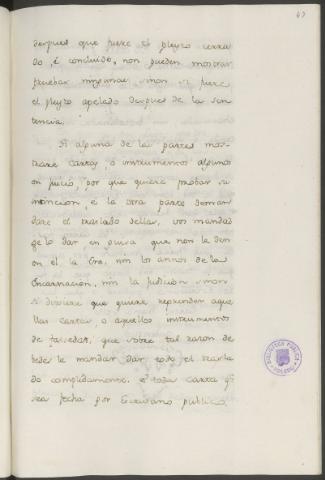 47
despues que fuere el pleyto cerra
do, é concluido, non pueden mostrar
pruebas ningunas, mon si fuere
el pleyto apelado despues de la sen
tencia.
Si alguna de las partes mos-
trare cartas, ó instrumentos algunos
en juicio, por que quiera probar su
intencion, e la otra parte deman
dare el traslado dellas, vos mandad
gelo dar en guisa que non le den
en el la Era, nin los annos de la
Encarnacion, nin la
si dixiere que quiere reprender aque
llas cartas ó aquellos instrumentos
de falsedat, que sobre tal razon de
bedes le mandar dar todo el trasla
do complidamente. é toda carta q
sea fecha por Escribano publico
BIBLIOTECA PUBLICA
TOLEDO